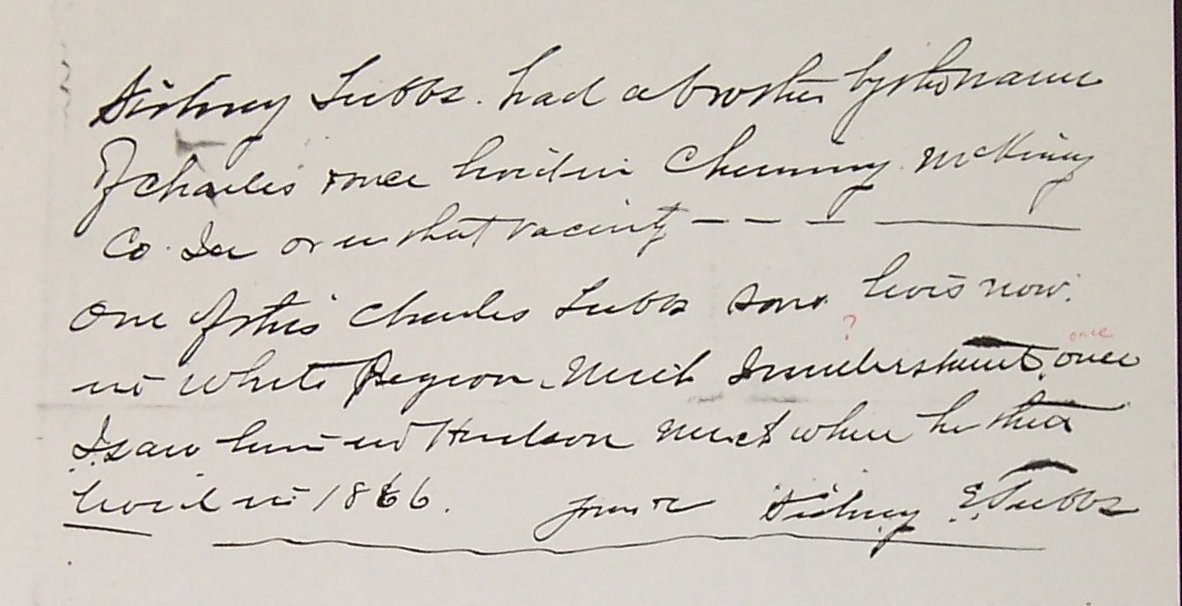 Sidney Tubbs. had a brother by the name
Of Charles once livid in Chemung McHenry
Co. or in that vacinty — — — ———
One of this Charles Tubbs sons livis now.
in White Pegion. Mich I understand, ? once once
I saw him in Hudson Mich where he then
livid in 1866. yours Sidney E Tubbs